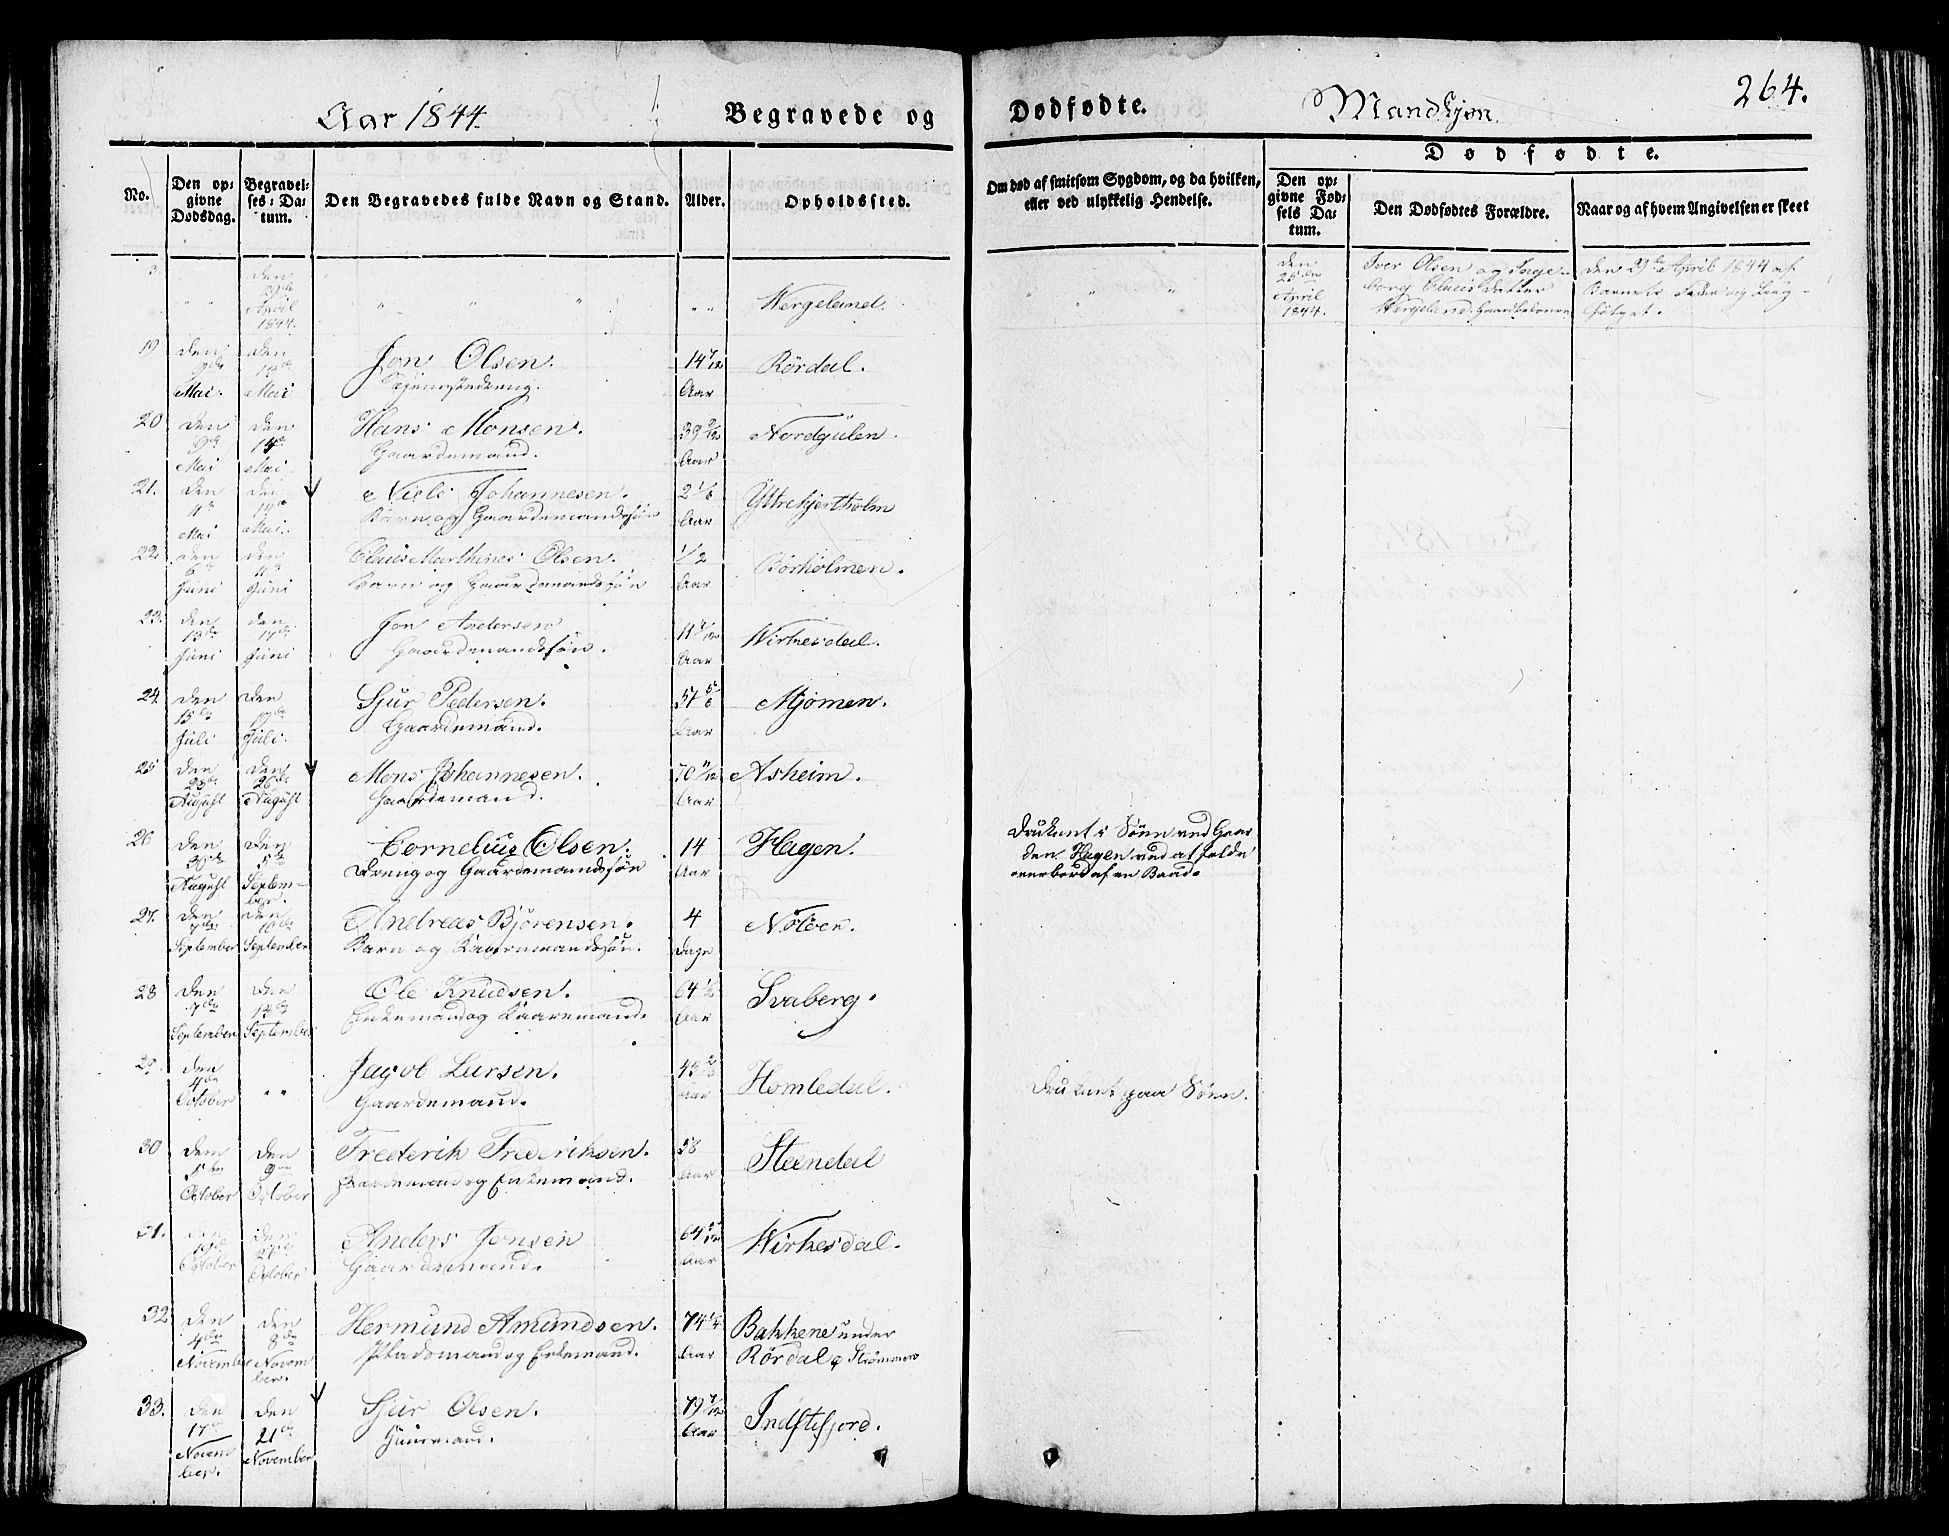 Aar 1844.
Begravede og
Dødfødte.
Mandkjøn
264.
No.
Den op-
givne
Dødsdag.
Begravel-
ses-Da-
tum.
Den Begravedes fulde Navn og Stand.
Alder.
Opholdssted.
Om død af smitsom Sygdom, og da hvilken,
eller ved ulykkelig Hendelse.
Dødfødte.
Den op-
givne Fød-
sels Da-
tum.
Den Dødfødtes Forældre.
Naar og af hvem Angivelsen er skeet
3
den
29de
April
1844.
Wergeland.
den
25de
April
1844.
Iver Olsen og Inge-
borg Claus datter
Wergeland
den 29de April 1844 af
Barnets Fader
19
den
9de
Mai.
den
Mai
Jon Olsen.
14 7/12
Aar
Rørdal.
20
den
Mai
den
14de
Mai.
Hans Monsen.
Gaardemand.
39
Aar
Nordgulen.
21.
den
Mai
den
Mai.
Niels Johannesen.
Barn og Gaardemandssøn
2 1/6
Aar
Yttrehjertholm
22.
den
6te
Juni
den
11te
Juni
Claus Marthines Olsen.
Barn og Gaardemandssøn
1/2
Aar
Börholmen.
23.
den
13de
Juni
den
17de
Juni
Jon Andersen
Gaardemandssøn.
11
Aar
Wirkesdal.
24
den
15de
Juli
den
19de
Juli.
Sjur Pedersen.
Gaardemand.
57 5/6
Aar
Mjømen.
25
den
23de
August
den
26de
August
Mons Johannesen.
Gaardemand.
70 11/12
Aar
Asheim.
26
den
30te
August
den
5te
Septem-
ber.
Cornelius Olsen.
Dreng og Gaardemandssøn
14
Aar
Hagen.
Druknet i Søen ved Gaar
den Hagen ved at falde
overbord af en Baad.
27.
den
7de
September
den
10de
September
Andreas Bjørensen.
Barn og Kaaremandssøn.
4
Dage
Nötöen.
28
den
7de
September
den
14de
September
Ole Knudsen.
Enkemand og Kaaremand.
64 1/2
Aar
Svaberg.
29.
den
4de
October
" "
Jacob Larsen.
Gaardemand.
43
Aar
Homledal.
Druknet paa Søen.
30
den
5te
October
den
9de
October
Frederik Frederiksen.
Gaardemand og Enkemand.
58
Aar
Steendal
31.
den
19de
October
den
October
Anders Jonsen
Gaardemand.
64
Aar
Wirkesdal.
32
den
4de
November
den
8de
Novem
ber.
Hermund Amundsen.
Pladsmand og Enkemand.
74 1/4
Aar
Bakkene under
Rørdal
33.
den
17de
Novem
ber.
den
21de
November
Sjur Olsen.
79 7/12
Aar
Indstefjord.